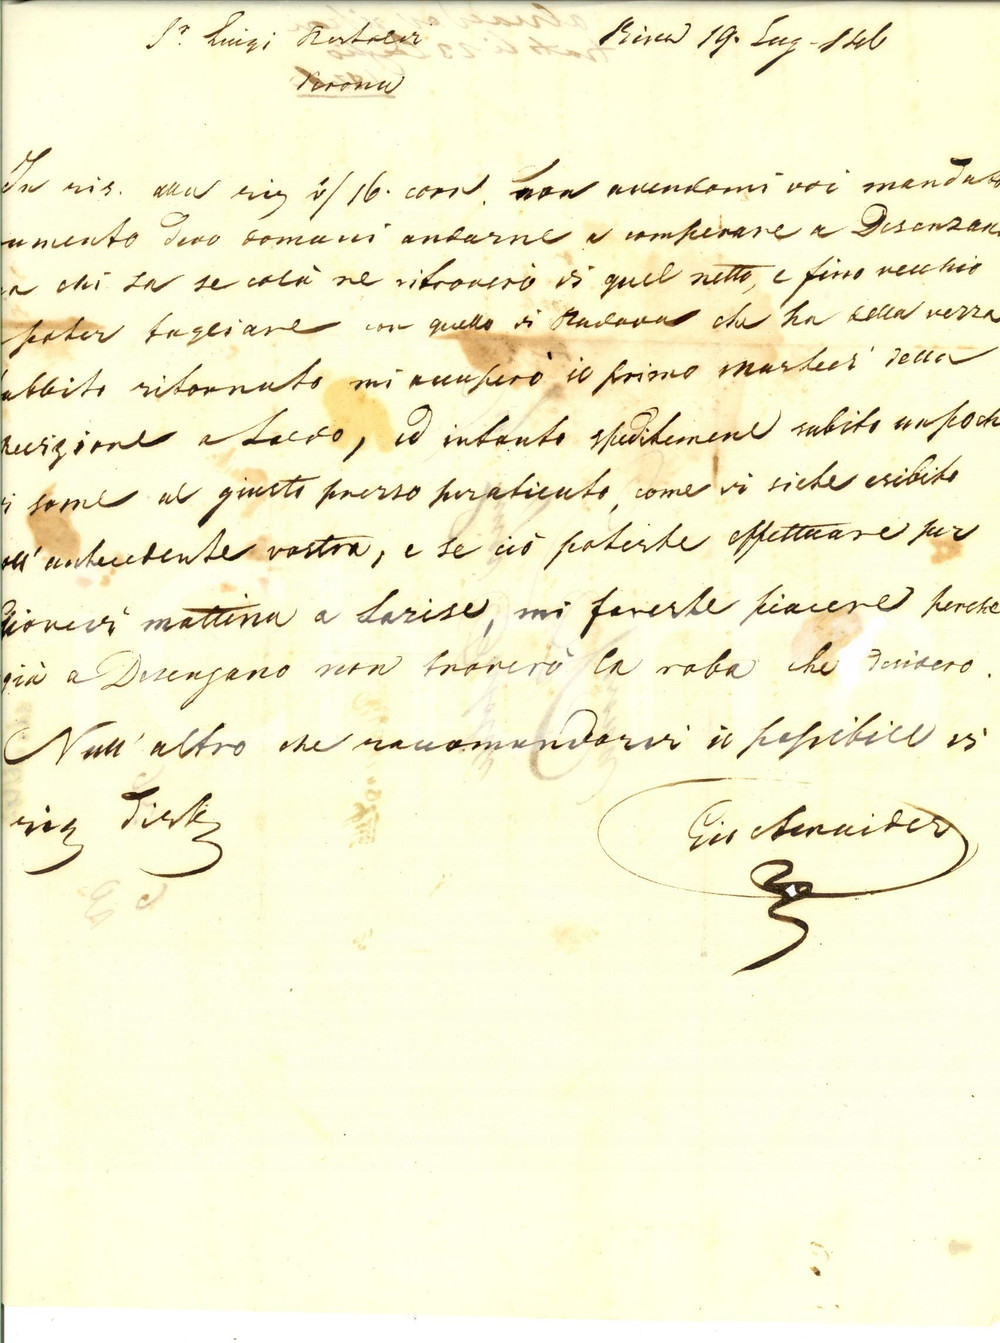 Sr. Luigi Bertoldi
Riva 19. Lug. 1846
Verona
In ris. alla 16. corr. non avendomi voi mandato
umento devo domani andarne a comperare a Desenzan
chi sa se colà ne ritroverò di quel netto, e fino vecchio
poter tagliare con quello di Padova che ha della verza
ubbito ritornato mi occuperò il primo Martedì della
a, ed intanto speditemene subito un poch
i some al giusto prezzo praticato, come vi siete esibito
ll' antecedente vostra, e se ciò poteste effettuare per
Giovedì mattina a Lazise, mi fareste piacere perche
già a Desenzano non troverò la roba che desidero.
Null' altro che raccomandarvi il possibile vi
Gio Schnaider